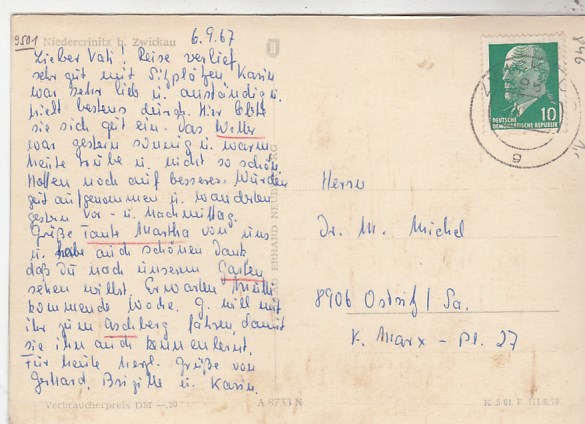 9501
Niedercrinitz b. Zwickau
6.9.67
Lieber Vati! Reise verlief
sehr gut mit Sitzplätzen Karin
war sehr lieb u. anständig u.
hielt bestens durch. Hier lebte
sie sich gut ein. Das Wetter
war gestern sonnig u. warm
heute trübe u. nicht so schön
Hoffen noch auf besseres. Wurden
gut aufgenommen u. wanderten
gestern Vor- u. Nachmittag.
Grüße Tante Martha von uns
u. habe auch schönen Dank
daß Du nach unserem Garten
sehen willst. Erwarten Mutti
kommende Woche. G. will mit
ihr zum Aschberg fahren, damit
sie ihn auch kennenlernt.
Für heute herzl. Grüße von
Gerhard, Brigitte u. Karin.
Verbraucherpreis DM —,20
A 8733 N
ERHARD NEUBERT KG
DEUTSCHE
DEMOKRATISCHE REPUBLIK
10
g
Herrn
Dr. M. Michel
8906 Ostritz/Sa.
K. Marx-Pl. 27